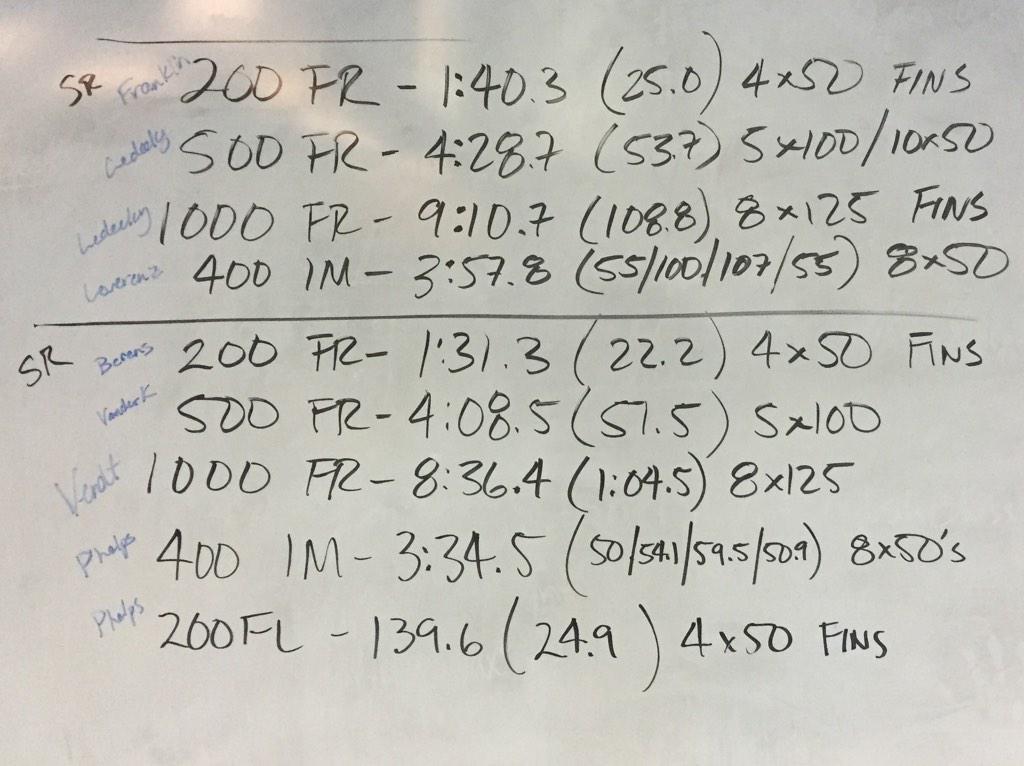 SR Franklin 200 FR - 1:40.3 (25.0) 4x50 FINS
Ledecky 500 FR - 4:28.7 (53.7) 5x100/10x50
Ledecky 1000 FR - 9:10.7 (108.8) 8x125 FINS
400 IM - 3:57.8 (55/100/107/55) 8x50
SR Berens 200 FR - 1:31.3 (22.2) 4x50 FINS
VanderK 500 FR - 4:08.5 (51.5) 5x100
1000 FR - 8:36.4 (1:04.5) 8x125
Phelps 400 IM - 3:34.5 (50/54.1/59.5/50.9) 8x50's
Phelps 200 FL - 139.6 (24.9) 4x50 FINS